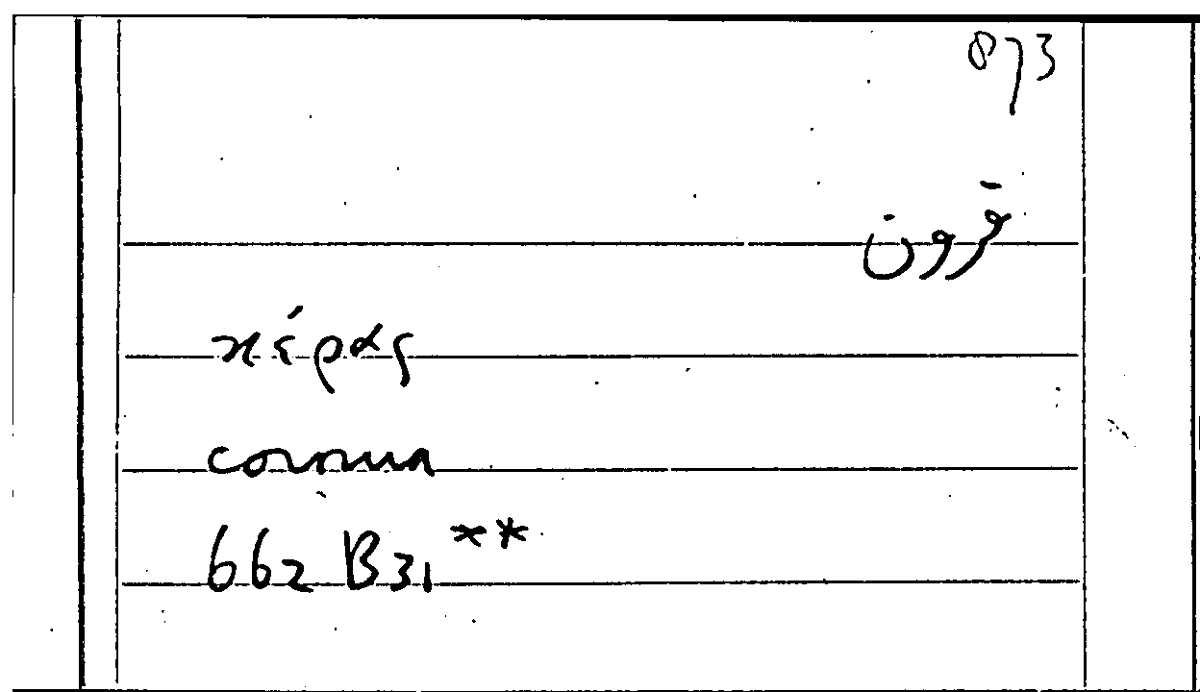 873
قرون
κέρας
cornua
662 B31**